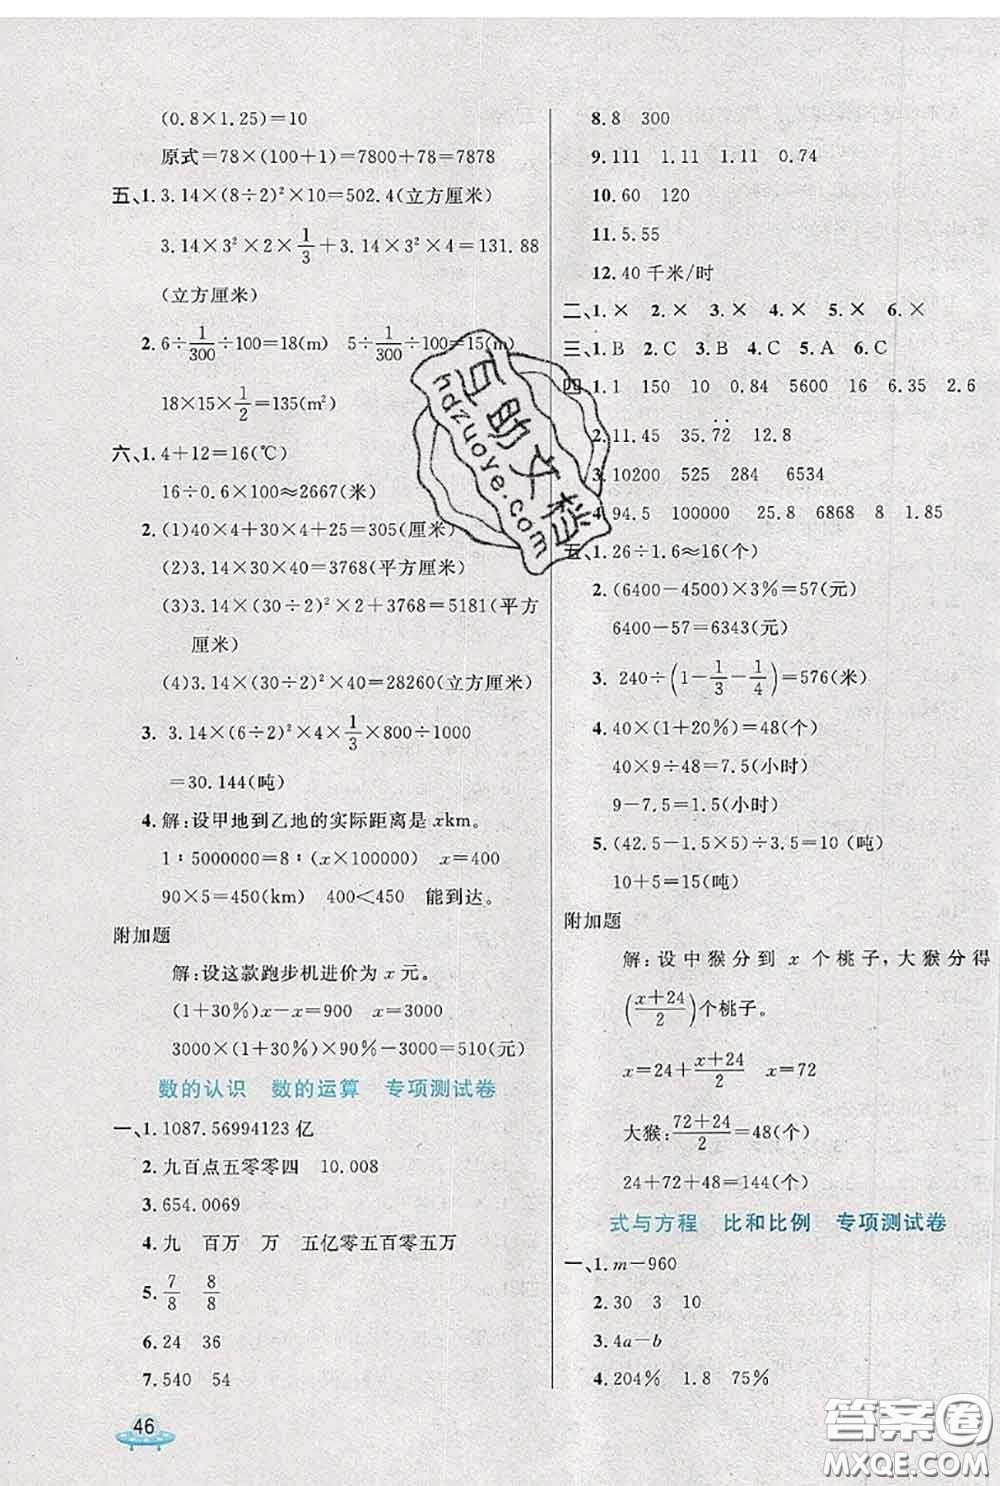 (0.8×1.25)=10
原式=78×(100+1)=7800+78=7878
五、1.3.14×(8÷2)²×10=502.4(立方厘米)
3.14×3²×2×1/3+3.14×3²×4=131.88
(立方厘米)
2.6÷1/300÷100=18(m) 5÷1/300÷100=15(m)
18×15×1/2=135(m²)
六、1.4+12=16(℃)
16÷0.6×100≈2667(米)
2.(1)40×4+30×4+25=305(厘米)
(2)3.14×30×40=3768(平方厘米)
(3)3.14×(30÷2)²×2+3768=5181(平方
厘米)
(4)3.14×(30÷2)²×40=28260(立方厘米)
3. 3.14×(6÷2)²×4×1/3×800÷1000
=30.144(吨)
4.解:设甲地到乙地的实际距离是xkm。
1∶5000000=8∶(x×100000) x=400
90×5=450(km) 400<450 能到达。
附加题
解:设这款跑步机进价为x元。
(1+30%)x-x=900 x=3000
3000×(1+30%)×90%-3000=510(元)
数的认识 数的运算 专项测试卷
一、1.1087.56994123亿
2.九百点五零零四 10.008
3.654.0069
4.九 百万 万 五亿零五百零五万
5.7/8 8/8
6.24 36
7.540 54
46
8.8 300
9.111 1.11 1.11 0.74
10.60 120
11.5.55
12.40千米/时
二、1.× 2.× 3.× 4.× 5.× 6.×
三、1.B 2.C 3.B 4.C 5.A 6.C
四、1.1 150 10 0.84 5600 16 6.35 2.6
2.11.45 35.7̇2̇ 12.8
3.10200 525 284 6534
4.94.5 100000 25.8 6868 8 1.85
五、1.26÷1.6≈16(个)
2.(6400-4500)×3%=57(元)
6400-57=6343(元)
3. 240÷(1-1/3-1/4)=576(米)
4.40×(1+20%)=48(个)
40×9÷48=7.5(小时)
9-7.5=1.5(小时)
5.(42.5-1.5×5)÷3.5=10(吨)
10+5=15(吨)
附加题
解:设中猴分到x个桃子,大猴分得
((x+24)/2)个桃子。
x=24+(x+24)/2 x=72
大猴:(72+24)/2=48(个)
24+72+48=144(个)
式与方程 比和比例 专项测试卷
一、1.m-960
2.30 3 10
3.4a-b
4.204% 1.8 75%
百助文档
hdzuoye.com
答案圈
MXQE.COM